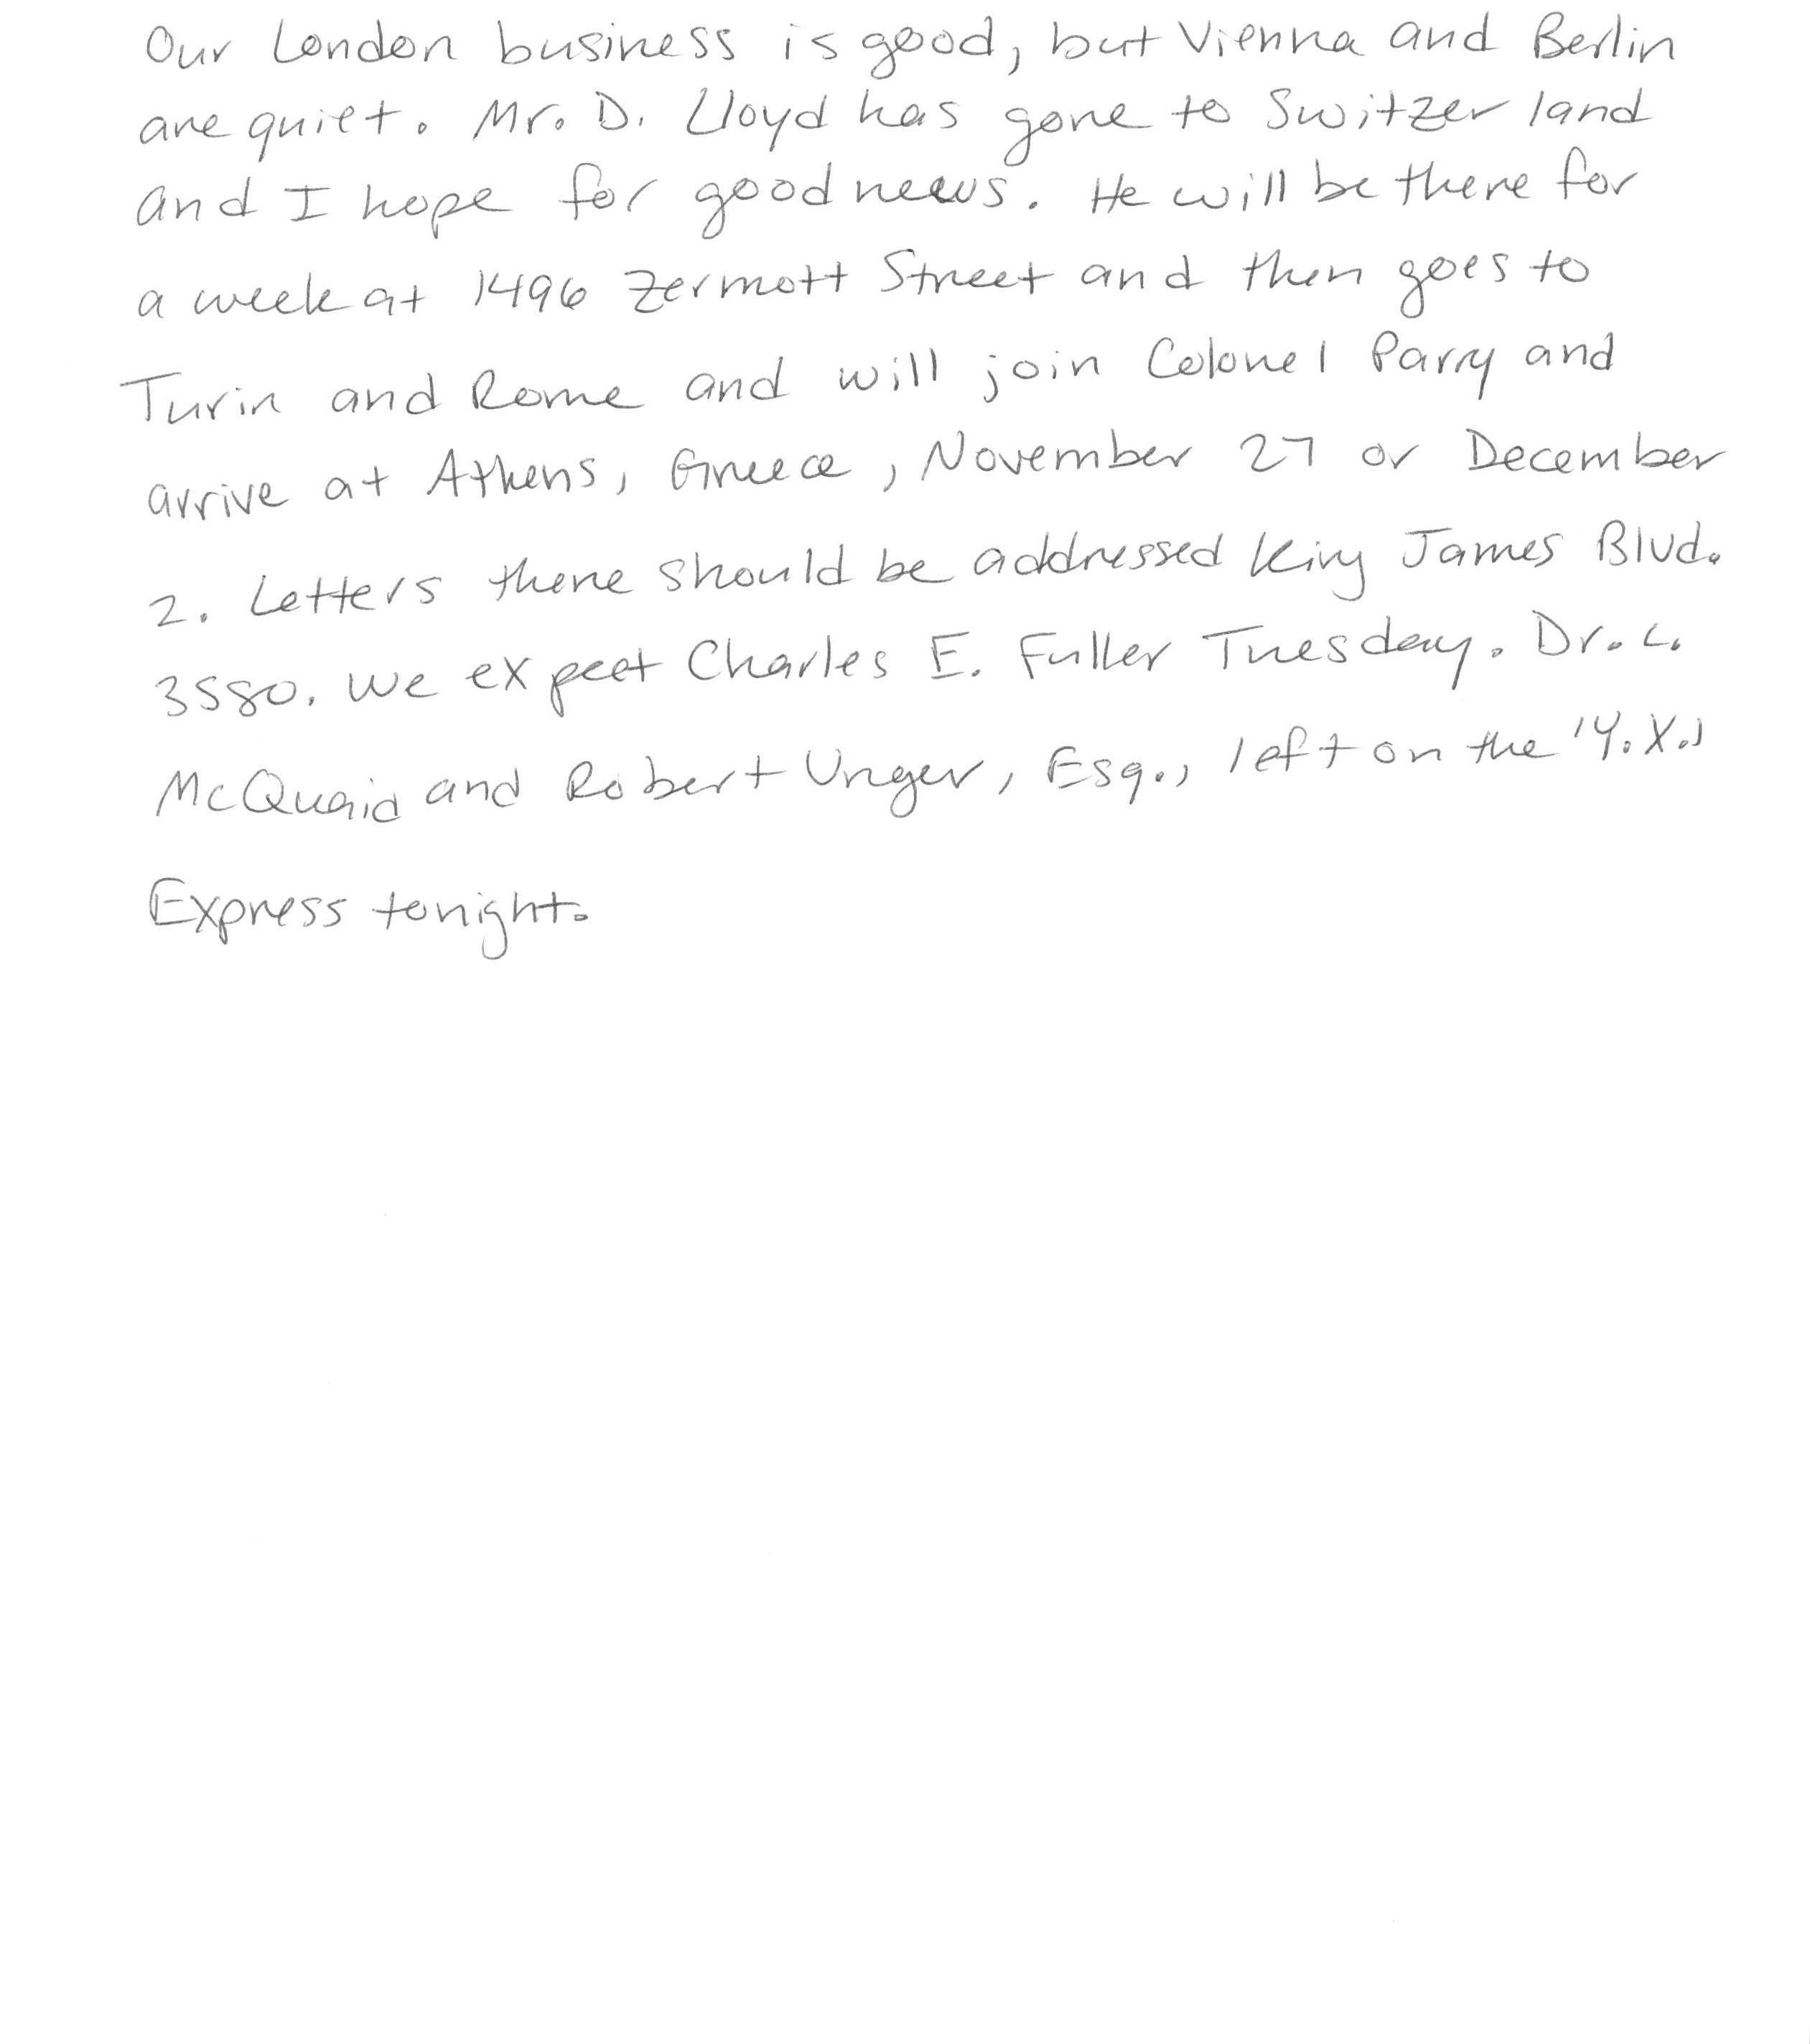 Our London business is good, but Vienna and Berlin
are quiet. Mr. D. Lloyd has gone to Switzerland
and I hope for good news. He will be there for
a week at 1496 Zermott Street and then goes to
Turin and Rome and will join Colonel Parry and
arrive at Athens, Greece, November 27 or December
2. Letters there should be addressed King James Blvd.
3580. We expect Charles E. Fuller Tuesday. Dr. L.
McQuaid and Robert Unger, Esq., left on the 'Y.X.'
Express tonight.